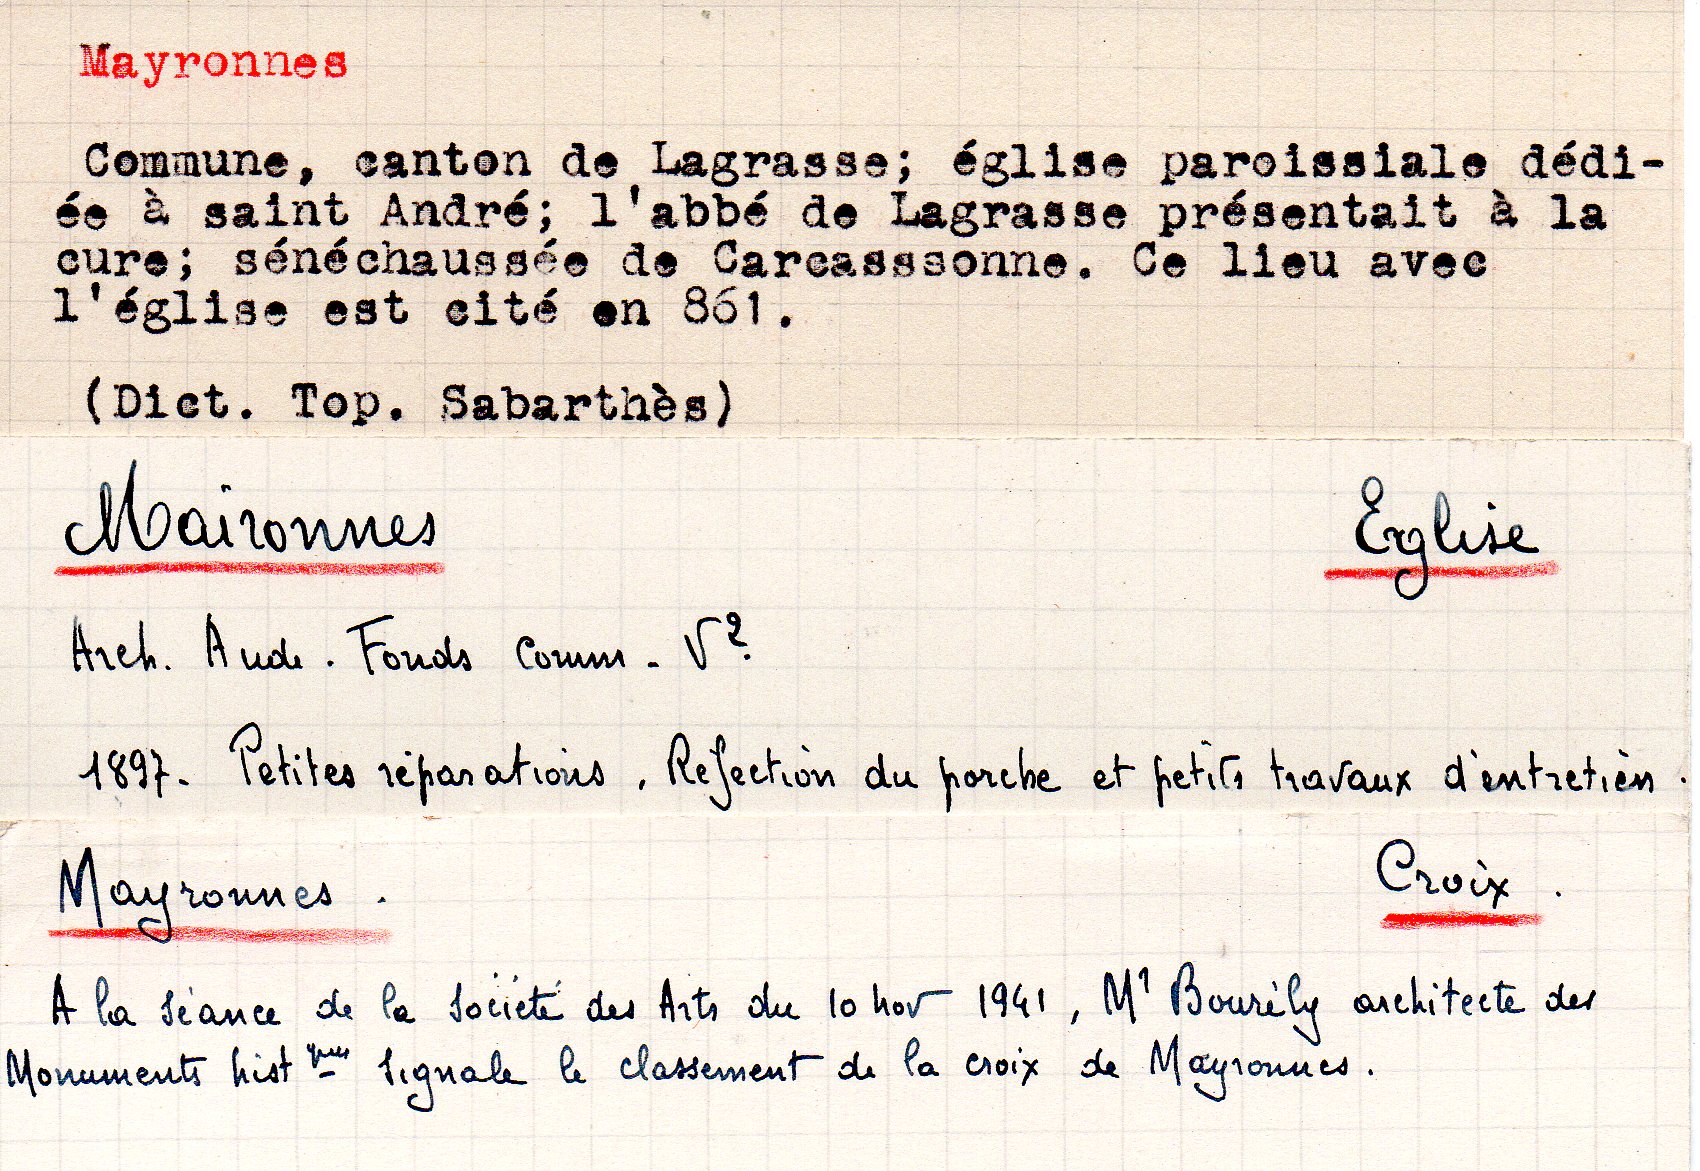 Mayronnes
Commune, canton de Lagrasse; église paroissiale dédi-
ée à saint André; l'abbé de Lagrasse présentait à la
cure; sénéchaussée de Carcasssonne. Ce lieu avec
l'église est cité en 861.
(Dict. Top. Sabarthès)
Maironnes Église
Arch. Aude. Fonds Comm. V².
1897. Petites réparations. Réfection du porche et petits travaux d'entretien.
Mayronnes. Croix.
A la séance de la Société des Arts du 10 nov 1941, Mr Bourély architecte des
Monuments histques signale le classement de la croix de Mayronnes.